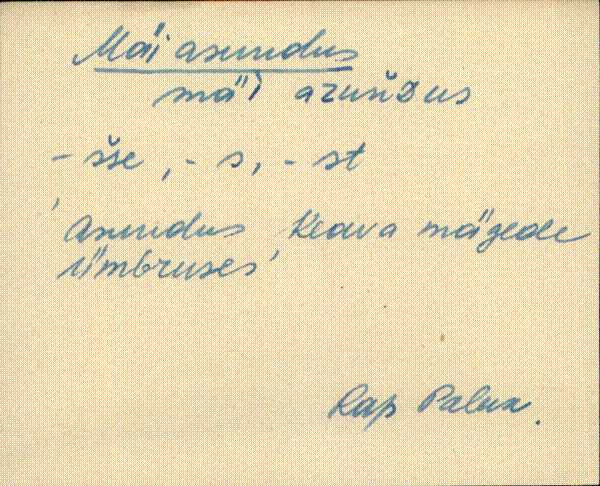 Mäi asundus
mäi azunDus
- sse, - s, - st
'Asundus Keava mägede
ümbruses'
Rap Palua.